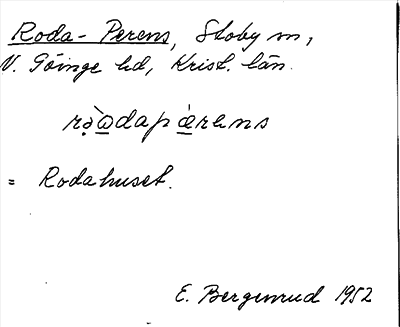 Roda- Perens, Stoby sn,
V. Göinge hd, Krist. län.
= Rodahuset.
E. Bergenrud 1952